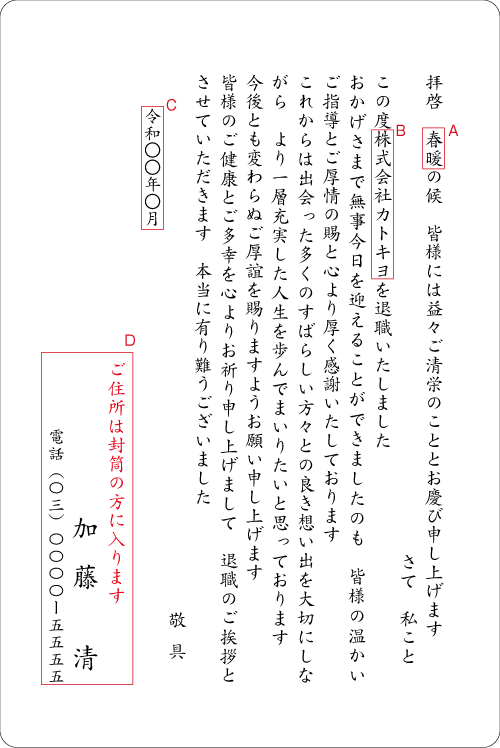 拝啓　春暖の候　皆様には益々ご清栄のこととお慶び申し上げます
A
さて　私こと
この度株式会社カトキヨを退職いたしました
B
おかげさまで無事今日を迎えることができましたのも　皆様の温かい
ご指導とご厚情の賜と心より厚く感謝いたしております
これからは出会った多くのすばらしい方々との良き想い出を大切にしな
がら　より一層充実した人生を歩んでまいりたいと思っております
今後とも変わらぬご厚誼を賜りますようお願い申し上げます
皆様のご健康とご多幸を心よりお祈り申し上げまして　退職のご挨拶と
させていただきます　本当に有り難うございました
敬具
C
令和〇〇年〇月
D
ご住所は封筒の方に入ります
加藤　清
電話（〇三）〇〇〇〇ー五五五五